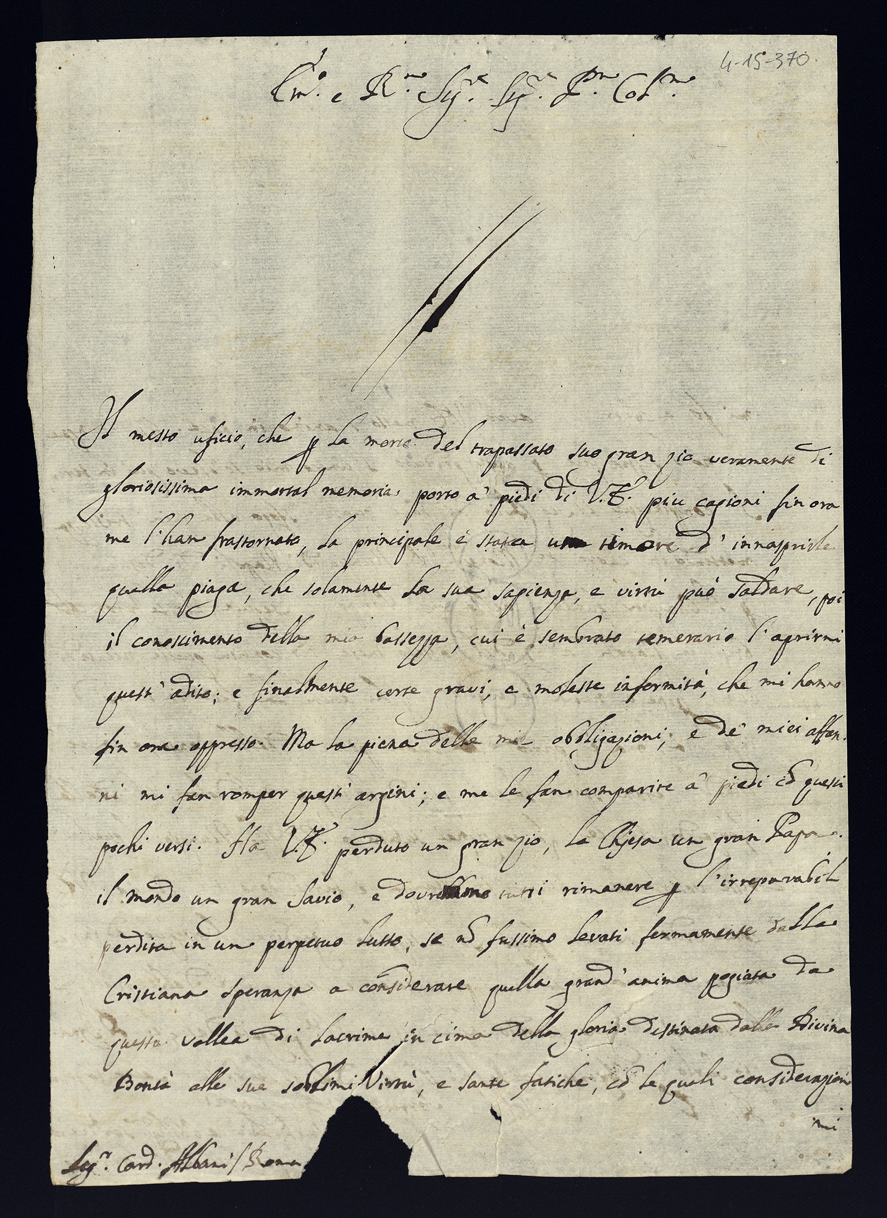 4-15-370.
Em.o e R.mo Sig.re Sig.re P.ron Col.mo
Il mesto uficio, che p la morte del trapassato suo gran zio veramente di
gloriosissima immortal memoria, porto a' piedi di V.E. piu cagioni fin ora
me l'han frastornato, la principale è stata un timore d'innasprirle
quella piaga, che solamente la sua sapienza, e virtù può saldare, poi
il conoscimento della mia bassezza, cui è sembrato temerario l'aprirmi
quest'adito; e finalmente certe gravi, e moleste infermità, che mi hanno
fin ora oppresso. Ma la piena delle mie obbligazioni, e de' miei affan-
ni mi fan romper quest'argini; e me le fan comparire a' piedi cō questi
pochi versi. Ha V.E. perduto un gran zio, la Chiesa un gran Papa,
il mondo un gran Savio, e tutti rimanere p l'irreparabil
perdita in un perpetuo lutto, se nō fussimo levati fermamente dalla
Cristiana speranza a cōsiderare quella grand'anima poggiata da
questa vallea di lacrime in cima della gloria destinata dalla Divina
Bontà alle sue soblimi Virtù, e sante fatiche, cō le quali considerazioni
mi
Sig.r Card. Albani / Roma